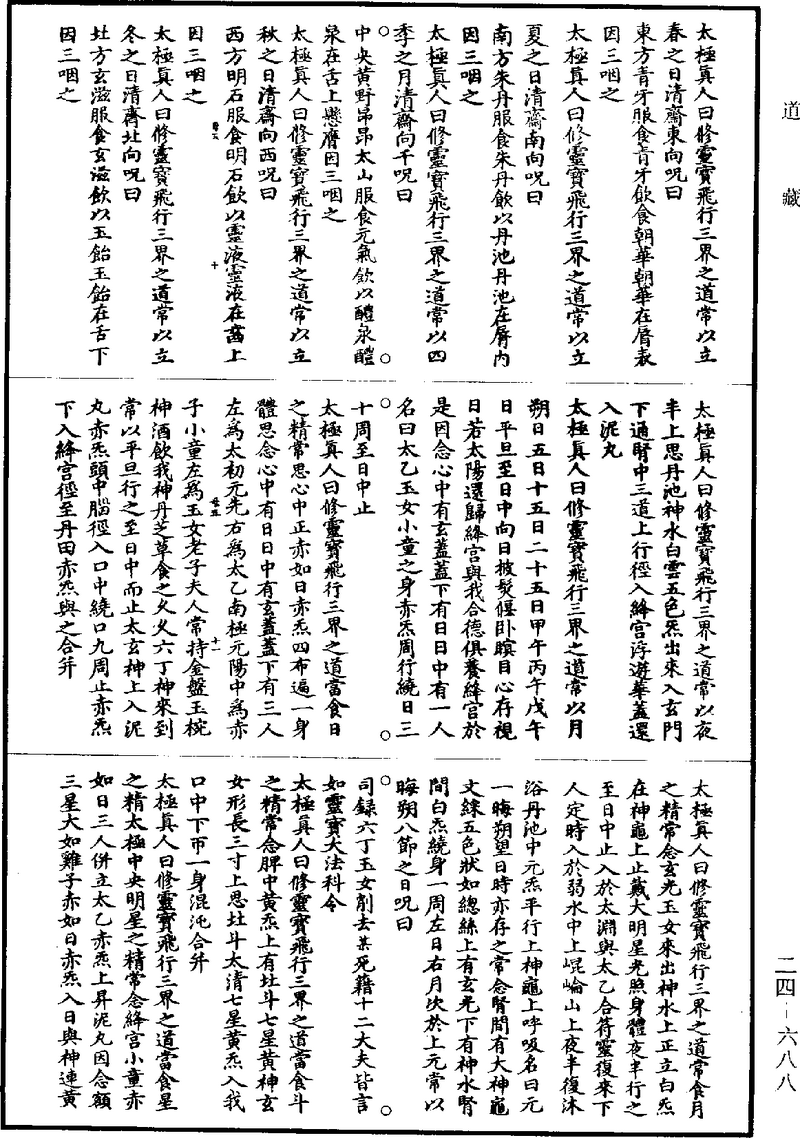 道藏
太極真人曰修靈寶飛行三界之道常以立
春之日清齋東向呪曰
東方青牙服食青牙飲食朝華朝華在脣表
因三咽之
太極真人曰修靈寶飛行三界之道常以立
夏之日清齋南向呪曰
南方朱丹服食朱丹飲以丹池丹池在脣内
因三咽之
太極真人曰修靈寶飛行三界之道常以四
季之月清齋向千呪曰
中央黄野昂昂太山服食元氣飲以醴泉醴
泉在舌上懸膺因三咽之
太極真人曰修靈寶飛行三界之道常以立
秋之日清齋向西呪曰
西方明石服食明石飲以靈液靈液在齒上
因三咽之
太極真人曰修靈寶飛行三界之道常以立
冬之日清齋北向呪曰
北方玄滋服食玄滋飲以玉飴玉飴在舌下
因三咽之
太極真人曰修靈寶飛行三界之道常以夜
半上思丹池神水白雲五色炁出來入玄門
下通腎中三道上行徑入絳宮浮遊華蓋還
入泥丸
太極真人曰修靈寶飛行三界之道常以月
朔日五日十五日二十五日甲午丙午戊午
日平旦至日中向日被髮偃卧瞑目心存視
日若太陽還歸絳宮與我合德俱養絳宮於
是因念心中有玄蓋蓋下有日日中有一人
名曰太乙玉女小童之身赤炁周行繞日三
十周至日中止
太極真人曰修靈寶飛行三界之道當食日
之精常思心中正赤如日赤炁四布遍一身
體思念心中有日日中有玄蓋蓋下有三人
左為太初元先右為太乙南極元陽中為赤
子小童左為玉女老子夫人常持金盤玉椀
神酒飲我神丹芝草食之久久六丁神來到
常以平旦行之至日中而止太玄神上入泥
丸赤炁頭中腦徑入口中繞口九周止赤炁
下入絳宮徑至丹田赤炁與之合并
太極真人曰修靈寶飛行三界之道常食月
之精常念玄光玉女來出神水上正立白炁
在神龜上止戴大明星光照身體夜半行之
至日中止入於太淵與太乙合符靈復來下
人定時入於弱水中上崐崘山上夜半復沐
浴丹池中元炁平行上神龜上呼吸名曰元
一晦朔望日時亦存之常念腎間有大神龜
文綵五色狀如總絲上有玄光下有神水腎
間白炁繞身一周左日右月次於上元常以
晦朔八節之日呪曰
司録六丁玉女削去某死籍十二大夫皆言
如靈寶大法科令
太極真人曰修靈寶飛行三界之道當食斗
之精常念脾中黄炁上有北斗七星黄神玄
女形長三寸上思北斗太清七星黄炁入我
口中下帀一身混沌合并
太極真人曰修靈寶飛行三界之道當食星
之精太極中央明星之精常念絳宮小童赤
如日三人併立太乙赤炁上昇泥丸因念額
三星大如雞子赤如日赤炁入日與神連黄
二四-六八八